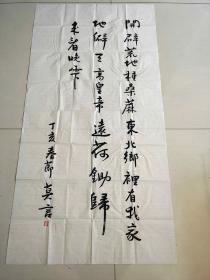 開辟荒地種桑蔴東北鄉裡有我家
地僻天高皇帝遠荷鋤歸
来看晚霞
丁亥春節 莫言